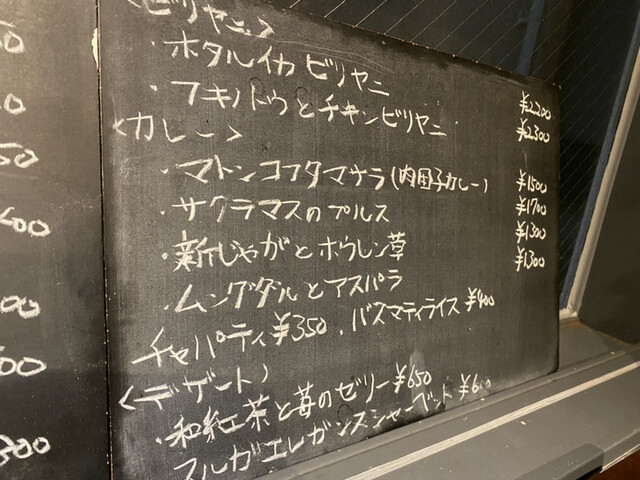 <ビリヤニ>
・ホタルイカ ビリヤニ ¥2200
・フキノトウとチキンビリヤニ ¥2300
<カレー>
・マトンコフタマサラ(肉団子カレー) ¥1500
・サクラマスのプルス ¥1700
・新じゃがとホウレン草 ¥1300
・ムングダルとアスパラ ¥1300
チャパティ¥350、バスマティライス¥400
<デザート>
・和紅茶と苺のゼリー¥650
スルガエレガンスシャーベット